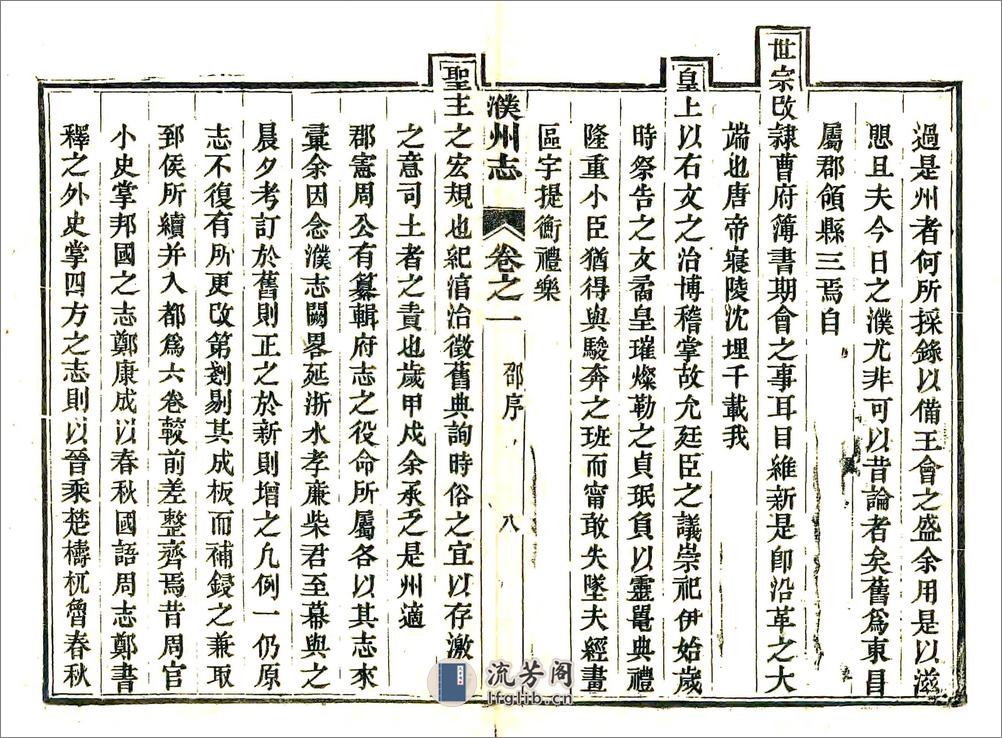 過是州者何所採錄以備王會之盛余用是以滋
思且夫今日之濮尤非可以昔論者矣舊為東昌
屬郡領縣三焉自
世宗改隸曹府簿書期會之事耳目維新是即沿革之大
端也唐帝寢陵沈埋千載我
皇上以右文之治博稽掌故允廷臣之議崇祀伊始歲
時祭告之文矞皇璀燦勒之貞珉負以靈鼉典禮
隆重小臣猶得與駿奔之班而甯敢失墜夫經畫
區宇提衡禮樂
濮州志 卷之一 邵序 八
聖主之宏規也紀渲治徵舊典詢時俗之宜以存激
之意司土者之責也歲甲戌余承乏是州適
郡憲周公有纂輯府志之役命所屬各以其志來
彙余因念濮志闕畧延浙水孝廉柴君至幕與之
晨夕考訂於舊則正之於新則增之凡例一仍原
志不復有所更改第剗剔其成板而補鋟之兼取
郅侯所續并入都為六卷較前差整齊焉昔周官
小史掌邦國之志鄭康成以春秋國語周志鄭書
釋之外史掌四方之志則以晉乘楚檮杌魯春秋
流芳阁
lfglib.com